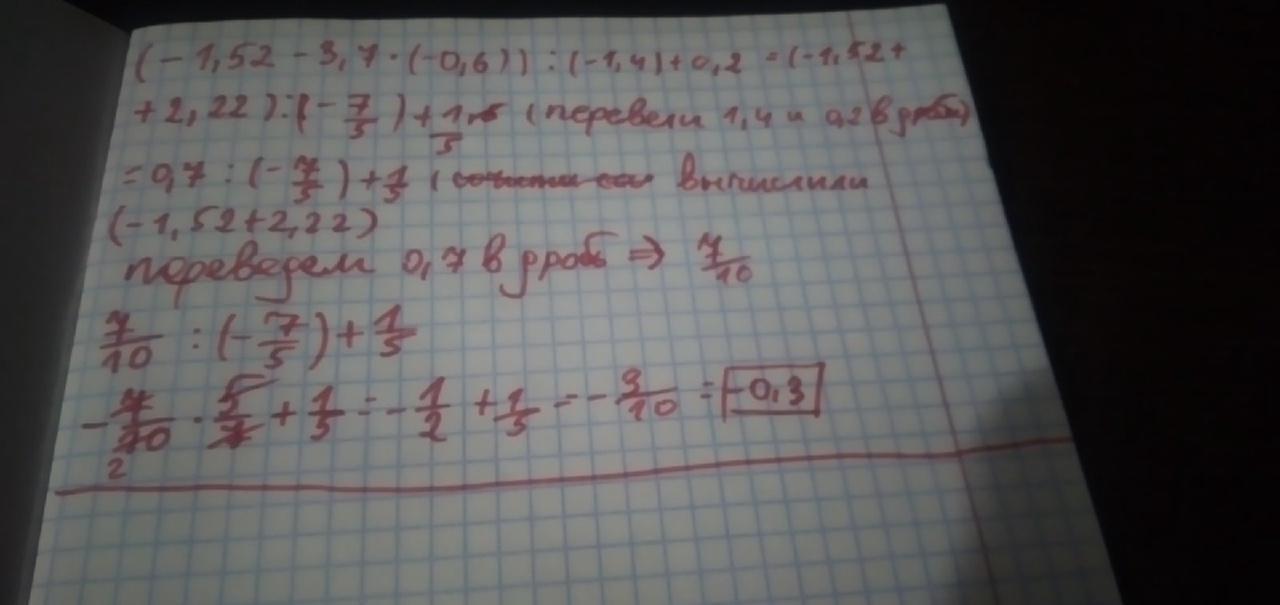 (-1,52 - 3,7 · (-0,6)) : (-1,4) + 0,2 = (-1,52 +
+ 2,22) : (-7/5) + 1/5 (перевели 1,4 и 0,2 в дроби)
= 0,7 : (-7/5) + 1/5 ( вычислили
(-1,52+2,22)
переведем 0,7 в дробь ⇒ 7/10
7/10 : (-7/5) + 1/5
-7/10 · 5/7 + 1/5 = -1/2 + 1/5 = -3/10 = -0,3
2